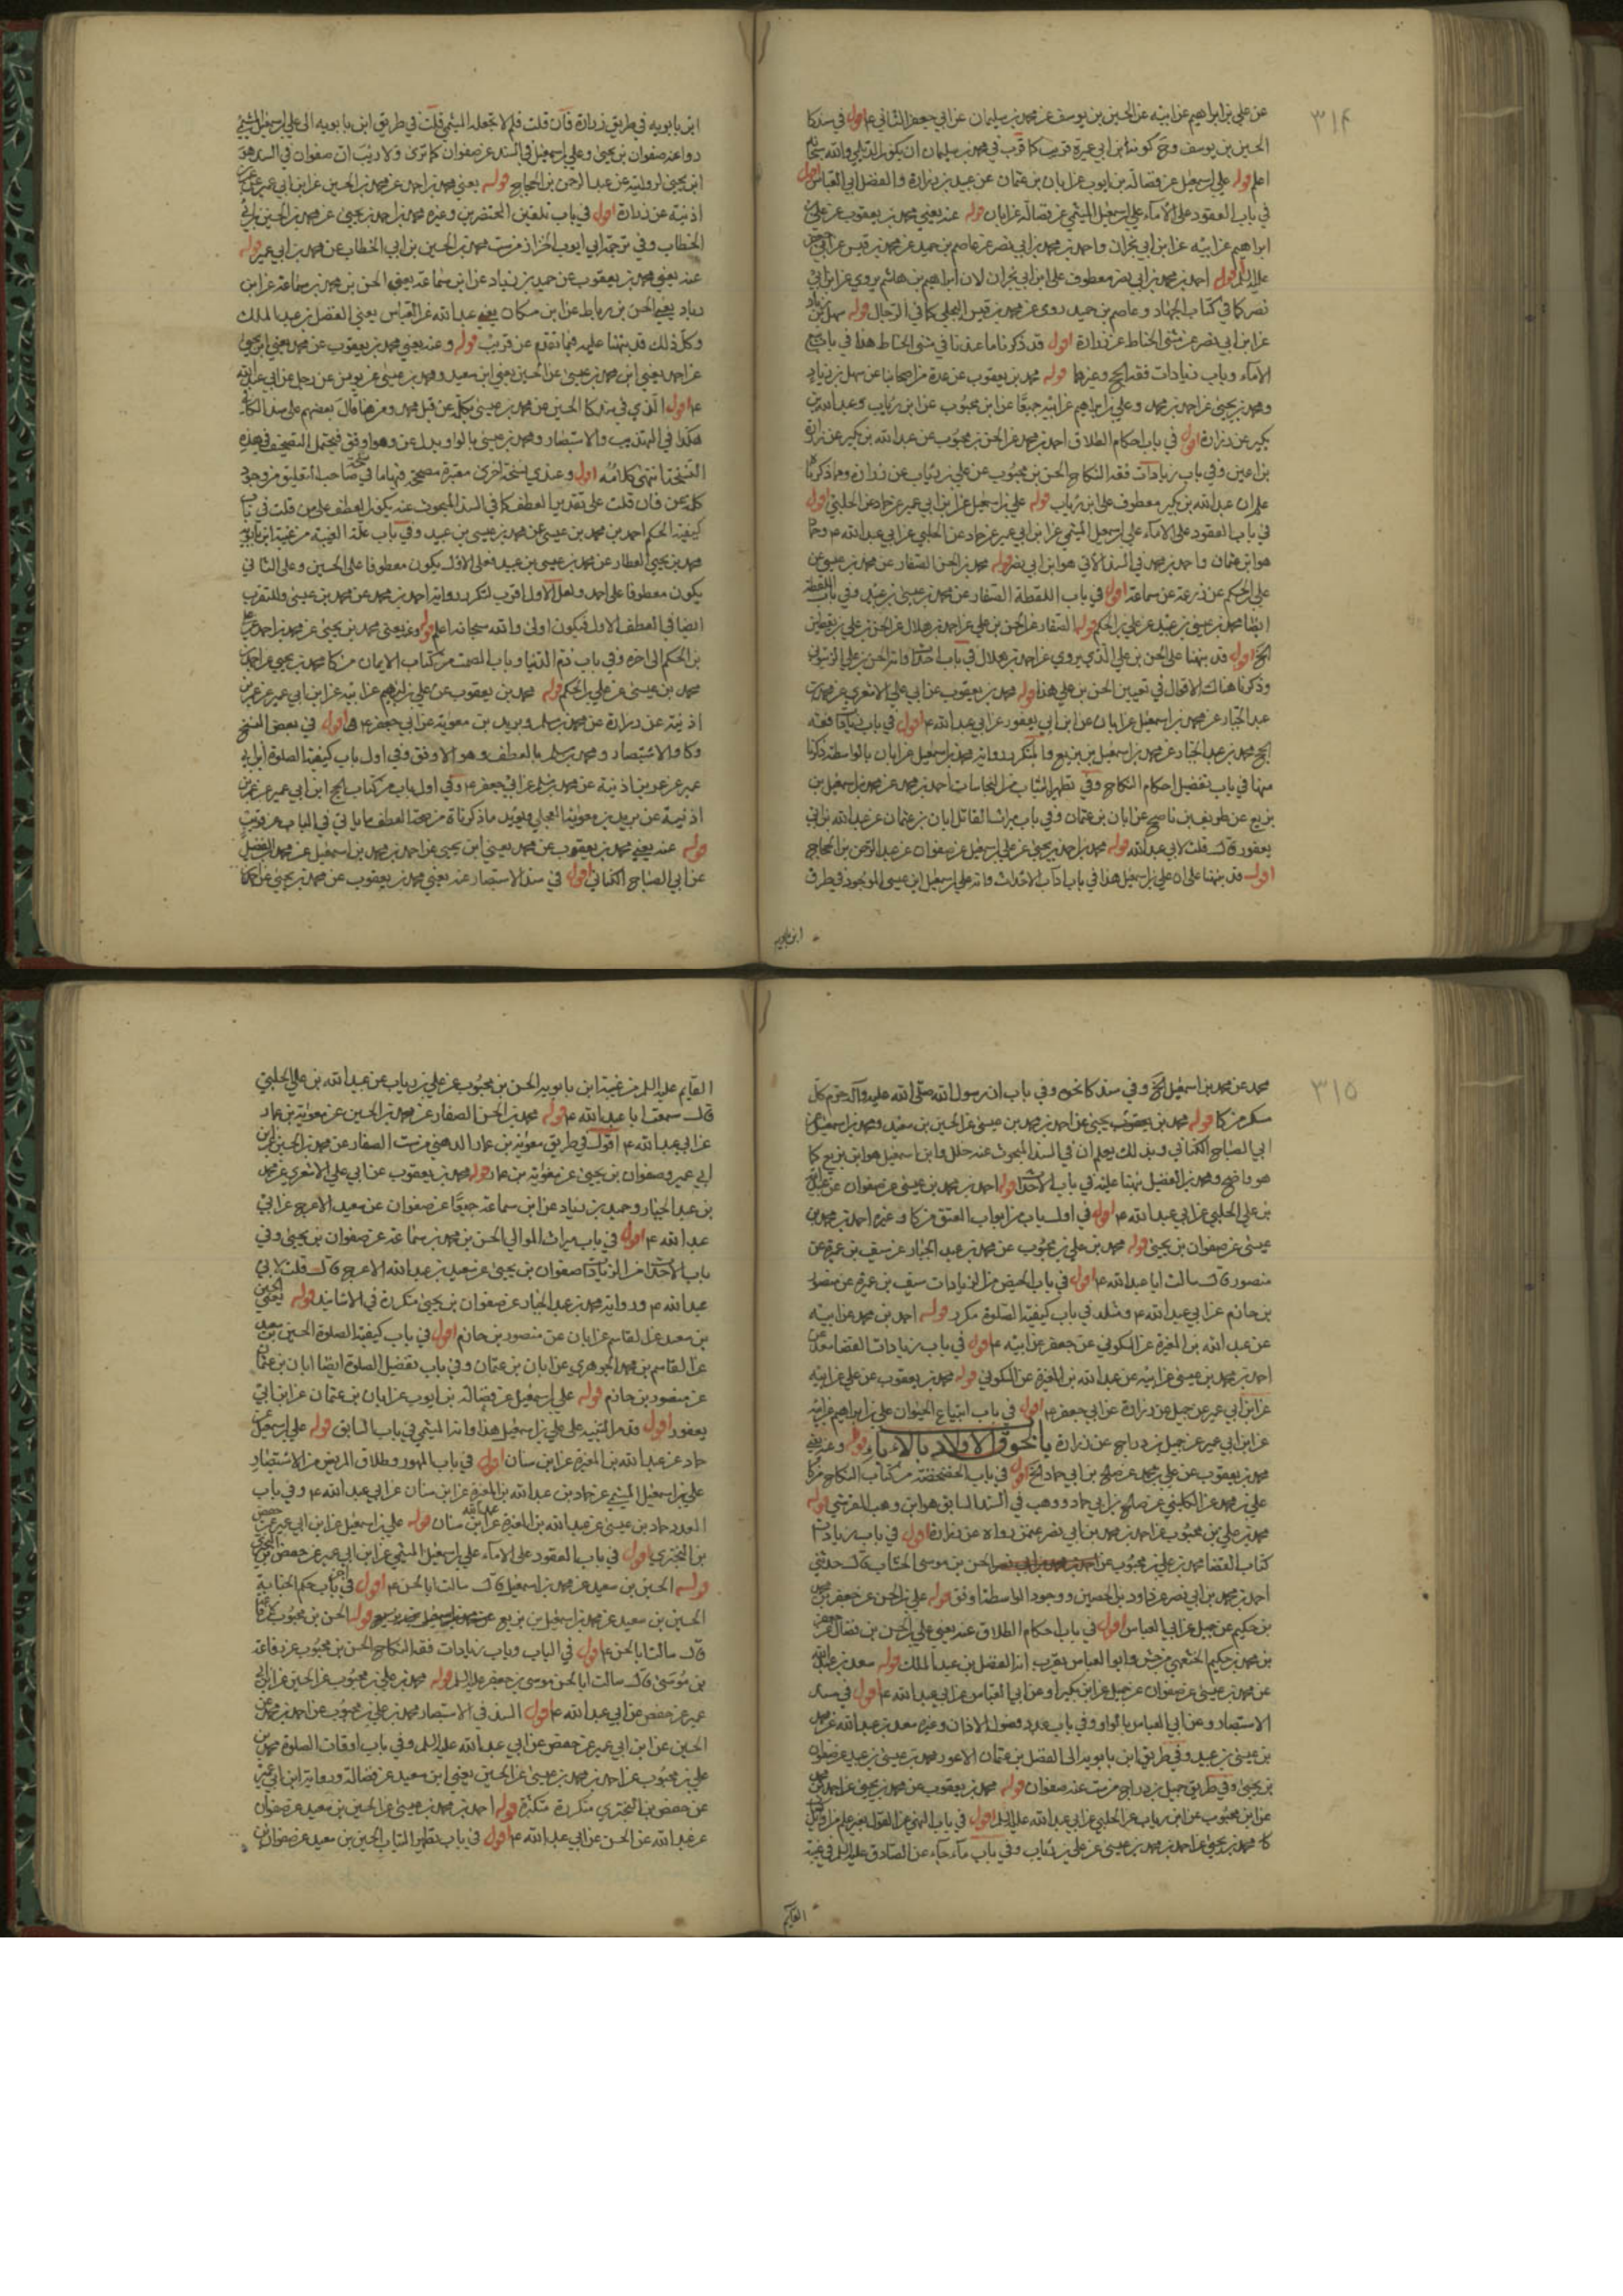 ٣١٤
عن علي بن ابراهيم عن ابيه عن الحسين بن يوسف عن محمد بن سليمان عن ابي جعفر الثاني ع اقول في سند كا
الحسين بن يوسف وح كونه ابن ابي عميرة قريب كما قرب في محمد بن سليمان ان يكون الديلمي والله سبحانه
اعلم قوله علي بن اسمعيل عن فضالة بن ايوب عن ابان بن عثمان عن عبيد بن زرارة والفضل ابي العباس اقول
في باب العقود على الاماء علي بن اسمعيل الميثمي عن فضالة عن ابان قوله عنه يعني محمد بن يعقوب عن علي بن
ابراهيم عن ابيه عن ابن ابي نجران واحمد بن محمد بن ابي نصر عن عاصم بن حميد عن محمد بن قيس عن ابي جعفر
عليه السلم اقول احمد بن محمد بن ابي نصر معطوف على ابن ابي نجران لان ابراهيم بن هاشم يروي عن ابن ابي
نصر كما في كتاب الجهاد وعاصم بن حميد روى عن محمد بن قيس البجلي كما في الرجال قوله سهل بن زياد
عن ابن ابي نصر عن مثنى الحناط عن زرارة اقول قد ذكرنا ما عندنا في مثنى الحناط هذا في باب بيع
الاماء وباب زيادات فقه الحج وغيرها قوله محمد بن يعقوب عن عدة من اصحابنا عن سهل بن زياد
ومحمد بن يحيى عن احمد بن محمد وعلي بن ابراهيم عن ابيه جميعا عن ابن محبوب عن ابن رئاب وعبد الله بن
بكير عن زرارة اقول في باب احكام الطلاق احمد بن محمد عن الحسن بن محبوب عن عبد الله بن بكير عن زرارة
بن اعين وفي باب زيادات فقه النكاح الحسن بن محبوب عن علي بن رئاب عن زرارة ومما ذكرنا
علم ان عبد الله بن بكير معطوف على ابن رئاب قوله علي بن اسمعيل عن ابن ابي عمير عن حماد عن الحلبي اقول
في باب العقود على الاماء علي بن اسمعيل الميثمي عن ابن ابي عمير عن حماد عن الحلبي عن ابي عبد الله ع وحماد
هو ابن عثمان واحمد بن محمد في السند الآتي هو ابن ابي نصر قوله محمد بن الحسن الصفار عن محمد بن عيسى عن
علي بن الحكم عن زرعة عن سماعة اقول في باب اللقطة الصفار عن محمد بن عيسى بن عبيد وفي باب اللقطة
ايضا محمد بن عيسى بن عبيد عن علي بن الحكم قوله الصفار عن الحسن بن علي عن احمد بن هلال عن الحسن بن علي بن يقطين
الخ اقول قد نبهنا على الحسن بن علي الذي يروي عن احمد بن هلال في باب الاحداث وانه الحسن بن علي الزيتوني
وذكرنا هناك الاقوال في تعيين الحسن بن علي هذا قوله محمد بن يعقوب عن ابي علي الاشعري عن محمد بن
عبد الجبار عن محمد بن اسمعيل عن ابان عن ابن ابي يعفور عن ابي عبد الله ع اقول في باب زيادات فقه
الحج محمد بن عبد الجبار عن محمد بن اسمعيل بن بزيع وما تكرر رواية محمد بن اسمعيل عن ابان بالواسطة ذكرنا
منها في باب تفضيل احكام النكاح وفي تطهير الثياب من النجاسات احمد بن محمد عن محمد بن اسمعيل بن
بزيع عن ظريف بن ناصح عن ابان بن عثمان وفي باب ميراث القاتل ابان بن عثمان عن عبد الله بن ابي
يعفور قال قلت لابي عبد الله قوله محمد بن احمد بن يحيى عن علي بن اسمعيل عن صفوان عن عبد الرحمن بن الحجاج
اقول قد نبهنا على ان علي بن اسمعيل هذا في باب آداب الاحداث وانه علي بن اسمعيل ابن عيسى الموجود في طرق
ابن بابويه
ابن بابويه في طريق زرارة فان قلت فلم لا تجعله الميثمي قلت في طريق ابن بابويه الى علي بن اسمعيل الميثمي
رواه عنه صفوان بن يحيى وعلي بن اسمعيل في السند عن صفوان كما ترى ولا ريب ان صفوان في السند هو
ابن يحيى لروايته عن عبد الرحمن بن الحجاج قوله يعني محمد بن احمد عن محمد بن الحسين عن ابن ابي عمير عن
اذينة عن زرارة اقول في باب تلقين المحتضرين وغيره محمد بن احمد بن يحيى عن محمد بن الحسين بن ابي
الخطاب وفي ترجمة ابي ايوب الخزاز من ست محمد بن الحسين بن ابي الخطاب عن محمد بن ابي عمير قوله
عنه يعني محمد بن يعقوب عن حميد بن زياد عن ابن سماعة يعني الحسن بن محمد بن سماعة عن ابن
رباط يعني الحسن بن رباط عن ابن مسكان يعني عبد الله عن ابي العباس يعني الفضل بن عبد الملك
وكل ذلك قد نبهنا عليه فيما تقدم عن قريب قوله وعنه يعني محمد بن يعقوب عن محمد يعني ابن يحيى
عن احمد يعني ابن محمد بن عيسى عن الحسين يعني ابن سعيد ومحمد بن عيسى عن يونس عن رجل عن ابي عبد الله
ع اقول الذي في سند كا الحسين عن محمد بن عيسى بكلمة عن قبل محمد وعن هنا قال بعضهم على سند الكافي
هكذا في التهذيب والاستبصار ومحمد بن عيسى بالواو بدل عن وهو اوفق فيحتمل التصحيف في هذه
النسخة انتهى كلامه اقول وعندي نسخة اخرى معتبرة مصححة فيها ما في نسخة صاحب التعليق من وجود
كلمة عن فان قلت على تقدير العطف كما في السند المبحوث عنه يكون العطف على من قلت في باب
كيفية الحكم احمد بن محمد بن عيسى عن محمد بن عيسى بن عبيد وفي باب علة الغيبة من غيبة ابن بابويه
محمد بن يحيى العطار عن محمد بن عيسى بن عبيد فعلى الاول يكون معطوفا على الحسين وعلى الثاني
يكون معطوفا على احمد ولعل الاول اقرب لتكرر رواية احمد بن محمد عن محمد بن عيسى وللتقرب
ايضا في العطف الاول فيكون اولى والله سبحانه اعلم قوله وعنه يعني محمد بن يحيى عن محمد بن احمد عن علي
بن الحكم الى اخره وفي باب ذم الدنيا وباب الصمت من كتاب الايمان من كا محمد بن يحيى عن احمد بن
محمد بن عيسى عن علي بن الحكم قوله محمد بن يعقوب عن علي بن ابراهيم عن ابيه عن ابن ابي عمير عن عمر بن
اذينة عن زرارة عن محمد بن مسلم وبريد بن معوية عن ابي جعفر ع اقول في بعض النسخ
وكا والاستبصار ومحمد بن مسلم بالعطف وهو الاوفق وفي اول باب كيفية الصلوة ابن ابي
عمير عن عمر بن اذينة عن محمد بن مسلم عن ابي جعفر ع وفي اول باب من كتاب الحج ابن ابي عمير عن عمر بن
اذينة عن بريد بن معوية العجلي ويؤيد ما ذكرناه من صحة العطف ما ياتي في الباب عن قريب
قوله عنه يعني محمد بن يعقوب عن محمد يعني ابن يحيى عن احمد بن محمد بن اسمعيل عن محمد بن الفضيل
عن ابي الصباح الكناني اقول في سند الاستبصار عنه يعني محمد بن يعقوب عن محمد بن يحيى عن احمد بن
٣١٥
محمد عن محمد بن اسمعيل الخ وفي سند كا نحوه وفي باب ان رسول الله صلى الله عليه وآله حرم كل
مسكر من كا قوله محمد بن يعقوب يحيى عن احمد بن محمد بن عيسى عن الحسين بن سعيد ومحمد بن اسمعيل عن
ابي الصباح الكناني وبذلك يعلم ان في السند المبحوث عنه خلل وابن اسمعيل هو ابن بزيع كما
هو واضح ومحمد بن الفضيل نبهنا عليه في باب الاحداث قوله احمد بن محمد بن عيسى عن صفوان عن عبد الله
بن علي الحلبي عن ابي عبد الله ع اقول في اول باب من ابواب العتق من كا وغيره احمد بن محمد بن
عيسى عن صفوان بن يحيى قوله محمد بن علي بن محبوب عن محمد بن عبد الجبار عن سيف بن عميرة عن
منصور قال سالت ابا عبد الله ع اقول في باب الحيض من الزيادات سيف بن عميرة عن منصور
بن حازم عن ابي عبد الله ع ومثله في باب كيفية الصلوة مكرر قوله احمد بن محمد عن ابيه
عن عبد الله بن المغيرة عن السكوني عن جعفر عن ابيه ع اقول في باب زيادات القضا سعد عن
احمد بن محمد بن عيسى عن ابيه عن عبد الله بن المغيرة عن السكوني قوله محمد بن يعقوب عن علي عن ابيه
عن ابن ابي عمير عن جميل عن زرارة عن ابي جعفر ع اقول في باب ابتياع الحيوان علي بن ابراهيم عن ابيه
عن ابن ابي عمير عن جميل بن دراج عن زرارة باب لحوق الاولاد بالاباء قوله وعنه يعني
محمد بن يعقوب عن علي بن محمد عن صالح بن ابي حماد الخ اقول في باب الخضخضة من كتاب النكاح من كا
علي بن محمد عن الكليني عن صالح بن ابي حماد ووهب في السند السابق هو ابن وهب القرشي قوله
محمد بن علي بن محبوب عن احمد بن محمد بن ابي نصر عمن رواه عن زرارة اقول في باب زيادات
كتاب القضا محمد بن علي بن محبوب عن الحسن بن موسى الخشاب قال حدثني
احمد بن محمد بن ابي نصر عن داود بن الحصين ووجود الواسطة اوفق قوله علي بن الحسن عن جعفر بن محمد
بن حكيم عن جميل عن ابي العباس اقول في باب احكام الطلاق عنه يعني علي بن الحسن بن فضال عن جعفر
بن محمد بن حكيم الخثعمي من جش وابو العباس يقرب انه الفضل بن عبد الملك قوله سعد بن عبد الله
عن محمد بن عيسى عن صفوان عن جميل عن ابن بكير او عن ابي العباس عن ابي عبد الله ع اقول في سند
الاستبصار وعن ابي العباس بالواو وفي باب عدد فصول الاذان وغيره سعد بن عبد الله عن محمد
بن عيسى بن عبيد وفي طريق ابن بابويه الى الفضل بن عثمان الاعور محمد بن عيسى بن عبيد عن صفوان
بن يحيى وفي طريق جميل بن دراج من ست عنه صفوان قوله محمد بن يعقوب عن محمد بن يحيى عن احمد بن محمد
عن ابن محبوب عن ابن رئاب عن الحلبي عن ابي عبد الله عليه السلم اقول في باب النهي عن القول بغير علم من اوائل
كا محمد بن يحيى عن احمد بن محمد بن عيسى عن علي بن رئاب وفي باب ما جاء عن الصادق عليه السلم في غيبة
القايم
القايم عليه السلم من غيبة ابن بابويه الحسن بن محبوب عن علي بن رئاب عن عبد الله بن علي الحلبي
قال سمعت ابا عبد الله ع قوله محمد بن الحسن الصفار عن محمد بن الحسين عن معوية بن عمار
عن ابي عبد الله ع اقول في طريق معوية بن عمار الدهني من ست الصفار عن محمد بن الحسين عن ابن
ابي عمير وصفوان بن يحيى عن معوية بن عمار قوله محمد بن يعقوب عن ابي علي الاشعري عن محمد
بن عبد الجبار وحميد بن زياد عن ابن سماعة جميعا عن صفوان عن سعيد الاعرج عن ابي
عبد الله ع اقول في باب ميراث الموالي الحسن بن محمد بن سماعة عن صفوان بن يحيى وفي
باب الاحداث من الزيادات صفوان بن يحيى عن سعيد بن عبد الله الاعرج قال قلت لابي
عبد الله ع ورواية محمد بن عبد الجبار عن صفوان بن يحيى متكررة في الاسانيد قوله يعني الحسين
بن سعيد عن القاسم عن ابان عن منصور بن حازم اقول في باب كيفية الصلوة الحسين بن سعيد
عن القاسم بن محمد الجوهري عن ابان بن عثمان وفي باب تفصيل الصلوة ايضا ابان بن عثمان
عن منصور بن حازم قوله علي بن اسمعيل عن فضالة بن ايوب عن ابان بن عثمان عن ابن ابي
يعفور اقول قد مر التنبيه على علي بن اسمعيل هذا وانه الميثمي في باب السابق قوله علي بن اسمعيل عن
حماد عن عبد الله بن المغيرة عن ابن سنان اقول في باب المهور وطلاق المريض من الاستبصار
علي بن اسمعيل الميثمي عن حماد بن عبد الله بن المغيرة عن ابن سنان عن ابي عبد الله ع وفي باب
العدد حماد بن عيسى عن عبد الله بن المغيرة عن عبد الله ابن سنان قوله علي بن اسمعيل عن ابن ابي عمير عن حفص
بن البختري اقول في باب العقود على الاماء علي بن اسمعيل الميثمي عن ابن ابي عمير عن حفص بن البختري
قوله الحسين بن سعيد عن محمد بن اسمعيل قال سالت ابا الحسن ع اقول في باب حكم الجنابة
الحسين بن سعيد عن محمد بن اسمعيل بن بزيع قوله الحسن بن محبوب عن رفاعة
قال سالت ابا الحسن ع اقول في الباب وباب زيادات فقه النكاح الحسن بن محبوب عن رفاعة
بن موسى قال سالت ابا الحسن موسى بن جعفر عليه السلم قوله محمد بن علي بن محبوب عن الحسين عن ابن ابي
عمير عن حفص عن ابي عبد الله ع اقول السند في الاستبصار محمد بن علي بن محبوب عن احمد بن محمد عن
الحسين عن ابن ابي عمير عن حفص عن ابي عبد الله عليه السلم وفي باب اوقات الصلوة محمد بن
علي بن محبوب عن احمد بن محمد بن عيسى عن الحسين يعني ابن سعيد عن فضالة ورواية ابن ابي عمير
عن حفص بن البختري متكررة متكثرة قوله احمد بن محمد بن عيسى عن الحسين بن سعيد عن صفوان
عن عبد الله عن الحسن عن ابي عبد الله ع اقول في باب تطهير الثياب الحسين بن سعيد عن صفوان بن